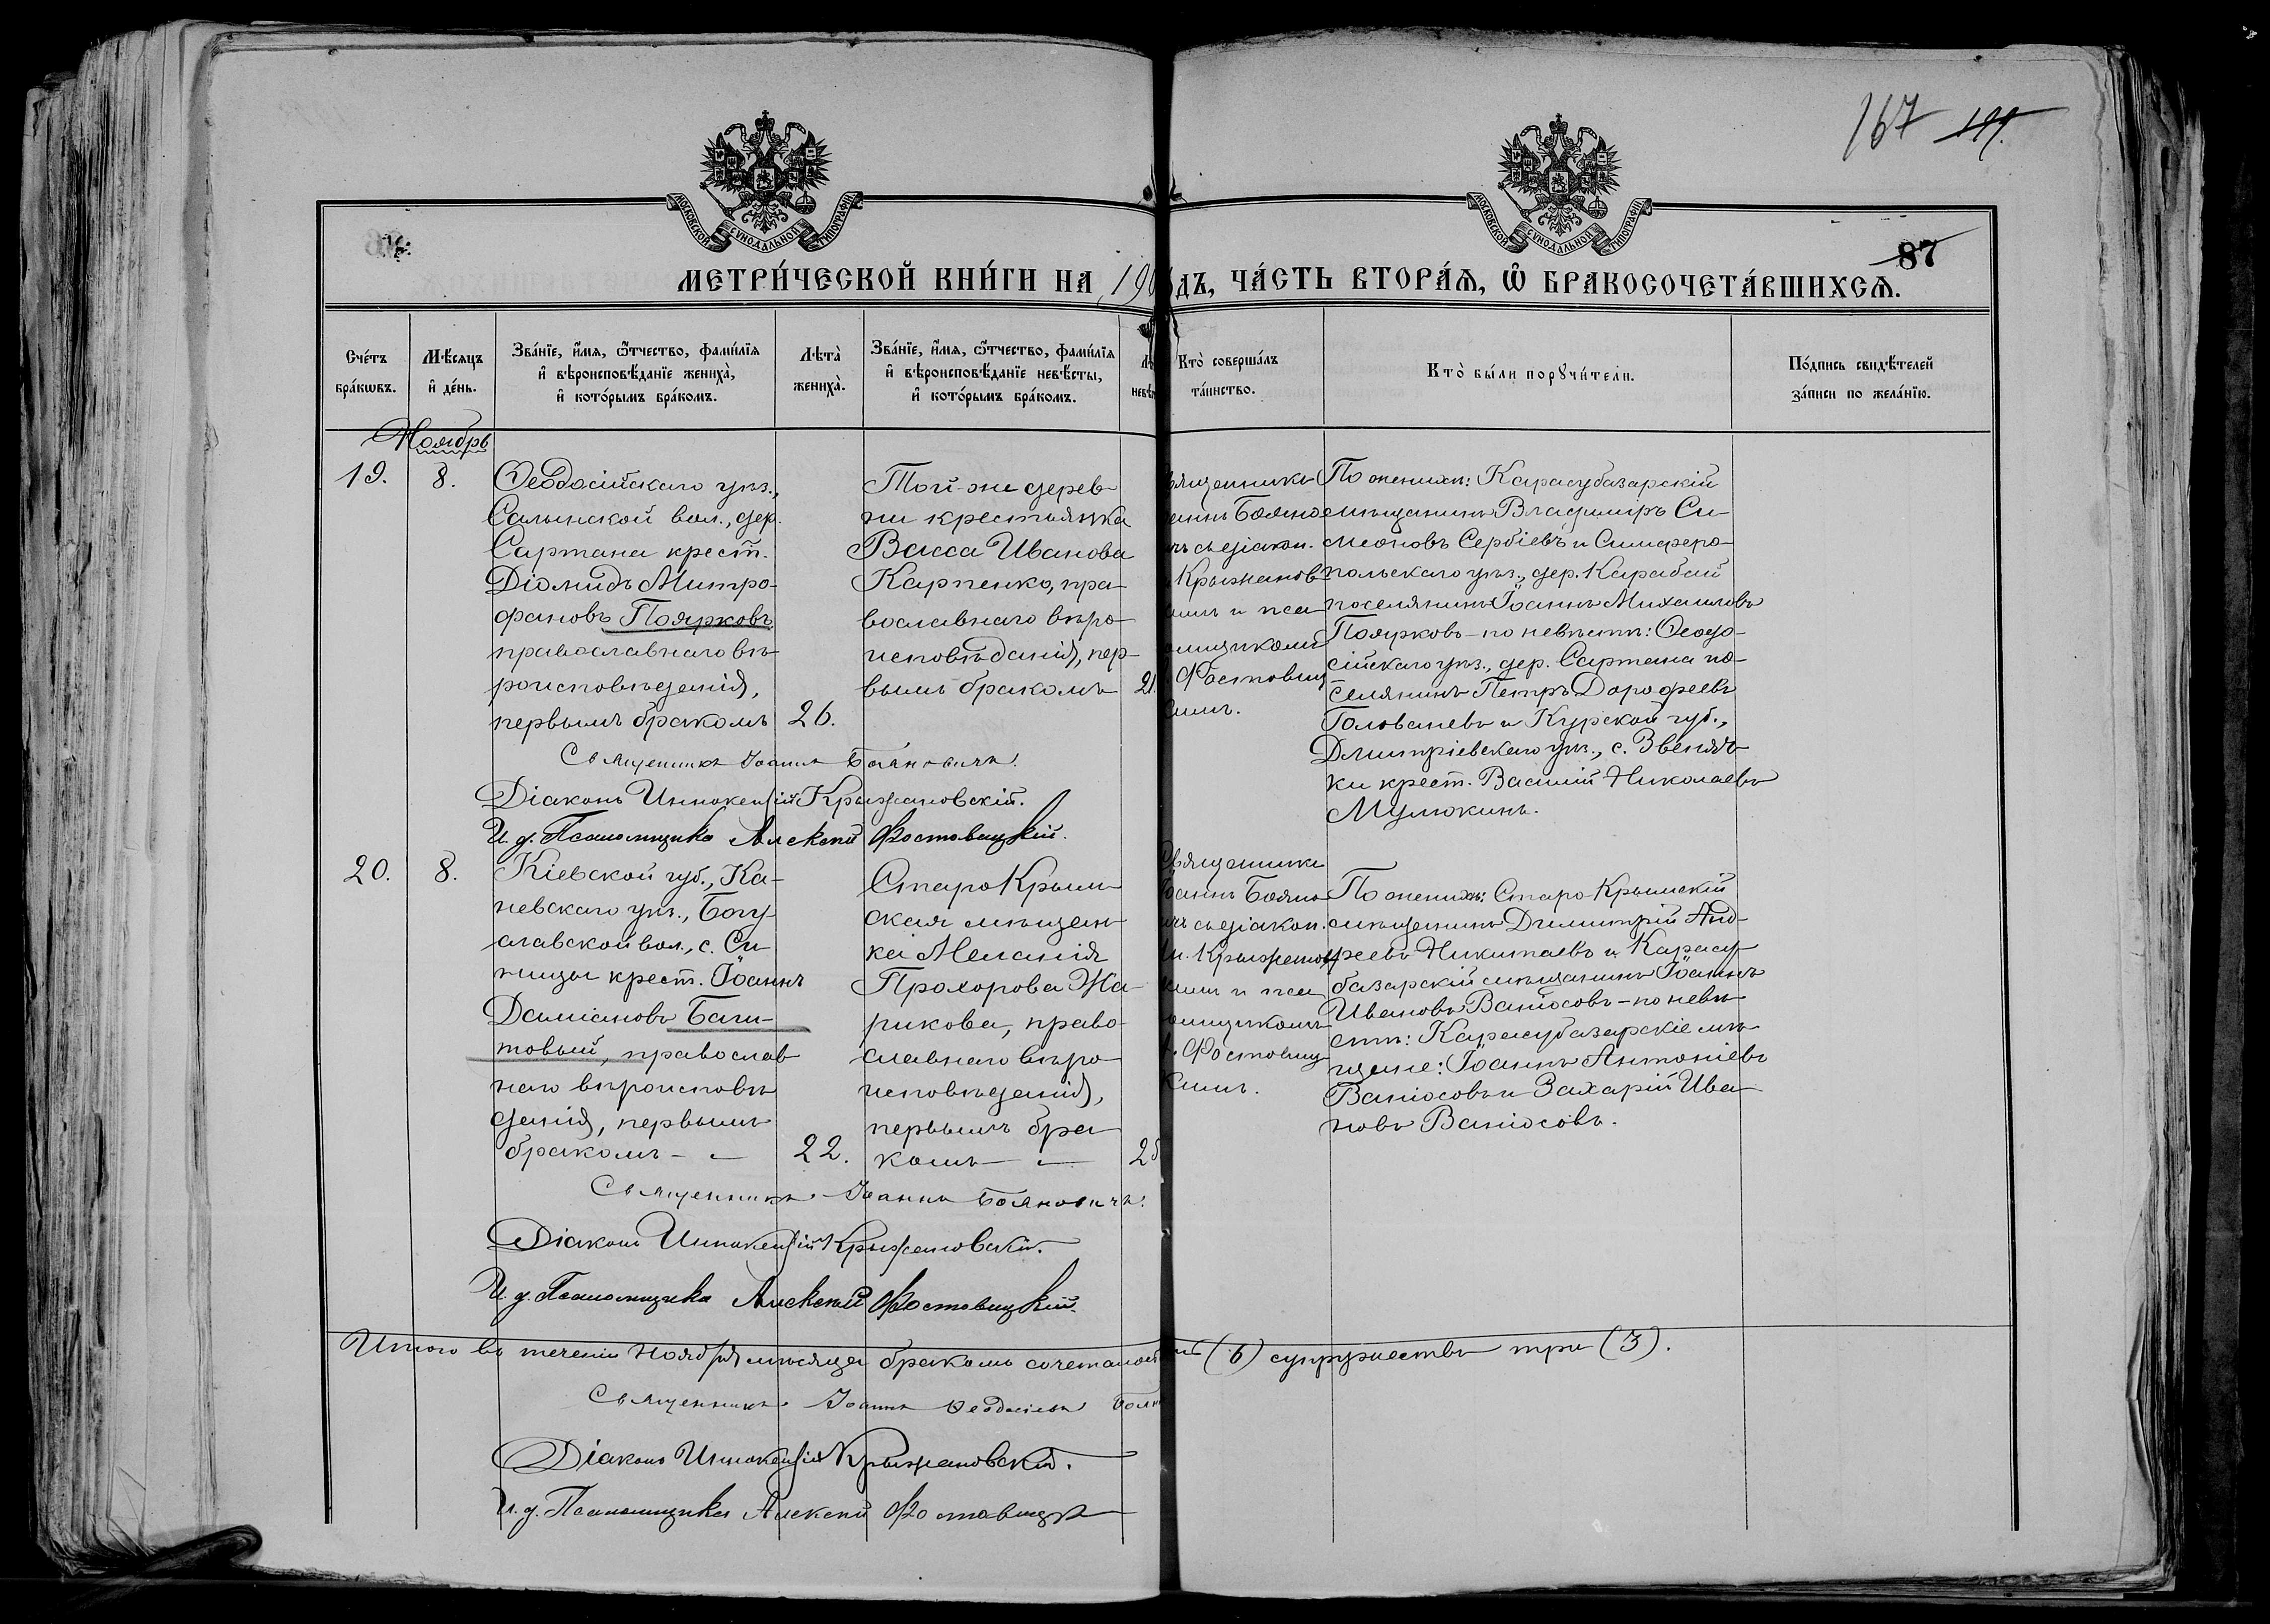 167 199.
МОСКОВСКОЙ СѴНОДАЛЬНОЙ ТИПОГРАФІИ
МОСКОВСКОЙ СѴНОДАЛЬНОЙ ТИПОГРАФІИ
87
МЕТРИ́ЧЕСКОЙ КНИ́ГИ НА 190 ДЪ, ЧА́СТЬ ВТОРА́Ѧ, Ѽ БРАКОСОЧЕТА́ВШИХСѦ.
Сче́тъ бра́кωвъ.
Мѣ́сѧцъ и҆ де́нь.
Зва́нїе, и҆́мѧ, ѻ҆́тчество, фами́лїѧ
и҆ вѣроисповѣ́данїе жениха̀,
и҆ кото́рымъ бра́комъ.
Лѣта̀ жениха̀.
Зва́нїе, и҆́мѧ, ѻ҆́тчество, фами́лїѧ
и҆ вѣроисповѣ́данїе невѣ́сты,
и҆ кото́рымъ бра́комъ.
Кто̀ соверша́лъ
та́инство.
Кто̀ бы́ли порꙋчи́тели.
По́дпись свидѣ́телей
за́писи по жела́нїю.
Ноябрь
19. 8.
Ѳеодосійскаго уѣз.,
Салынской вол., дер.
Сартана крест.
Діомидъ Митро-
фановъ Поярковъ,
православнаго вѣ-
роисповѣданія,
первымъ бракомъ 26.
Той-же дерев-
ни крестьянка
Васса Иванова
Карпенко, пра-
вославнаго вѣро-
исповѣданія, пер-
вымъ бракомъ 21.
ященникъ
аннъ Бояно
чъ съ діакон.
Крыжанов
кимъ и пса
омщикомъ
Фостовиц
кимъ.
По женихѣ: Карасубазарскій
мѣщанинъ Владиміръ Си-
меоновъ Сербіевъ и Симферо-
польскаго уѣз., дер. Карабай
поселянинъ Іоаннъ Михаиловъ
Поярковъ - по невѣстѣ: Ѳеодо-
сійскаго уѣз., дер. Сартана по-
селянинъ Петръ Дорофеевъ
Голованевъ и Курской губ.,
Дмитріевскаго уѣз., с. Звеняч-
ки крест. Василій Николаевъ
Мулюкинъ.
Священникъ Іоаннъ Бояновичъ.
Діаконъ Иннокентій Крыжановскій.
И. д. Псаломщика Алексій Фостовицкій.
20. 8.
Кіевской губ., Ка-
невскаго уѣз., Богу-
славской вол., с. Си-
ницы крест. Іоаннъ
Даміановъ Баги-
товый, православ-
наго вѣроисповѣ-
данія, первымъ
бракомъ - - 22.
Старо Крым-
ская мѣщан-
ка Меланія
Прохорова Жа-
рикова, право-
славнаго вѣро-
исповѣданія,
первымъ бра-
комъ - 2
Священникъ
Іоаннъ Бояно
чъ съ діакон.
Ин. Крыжанов
кимъ и пса
омщикомъ
А. Фостовиц
кимъ.
По женихѣ: Старо-Крымскій
мѣщанинъ Димитрій Анд-
реевъ Никитаевъ и Карасу-
базарскій мѣщанинъ Іоаннъ
Ивановъ Ваніосовъ - по невѣ-
стѣ: Карасубазарскіе мѣ-
щане: Іоаннъ Антоніевъ
Ваніосовъ и Захарій Ива-
новъ Ваніосовъ.
Священникъ Іоаннъ Бояновичъ.
Діаконъ Иннокентій Крыжановскій.
И. д. Псаломщика Алексій Фостовицкій.
Итого въ теченіи Ноября мѣсяца бракомъ сочеталось (6) супружествъ три (3).
Священникъ Іоаннъ Ѳеодосіевъ Боян
Діаконъ Иннокентій Крыжановскій.
И. д. Псаломщика Алексій Фостовицкій